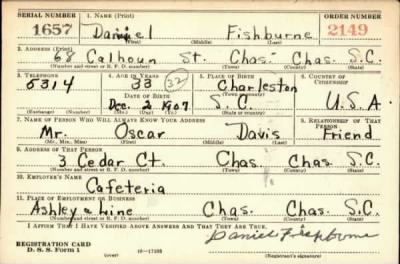 SERIAL NUMBER 1. NAME (Print) ORDER NUMBER
1657 Daniel Fishburne 2149
(First) (Middle) (Last)
2. ADDRESS (Print)
68 Calhoun St. Chas. Chas S.C.
(Number and street or R. F. D. number) (Town) (County) (State)
3. TELEPHONE 4. AGE IN YEARS 5. PLACE OF BIRTH 6. COUNTRY OF CITIZENSHIP
5314 33 (32) Charleston
DATE OF BIRTH (Town or county)
Dec. 2 1907 S.C. U.S.A
(Exchange) (Number) (Mo.) (Day) (Yr.) (State or country)
7. NAME OF PERSON WHO WILL ALWAYS KNOW YOUR ADDRESS 8. RELATIONSHIP OF THAT PERSON
Mr. Oscar Davis Friend
(Mr., Mrs., Miss) (First) (Middle) (Last)
9. ADDRESS OF THAT PERSON
3 Cedar Ct. Chas. Chas S.C.
(Number and street or R. F. D. number) (Town) (County) (State)
10. EMPLOYER'S NAME
Cafeteria
11. PLACE OF EMPLOYMENT OR BUSINESS
Ashley & Line Chas. Chas S.C.
(Number and street or R. F. D. number) (Town) (County) (State)
I AFFIRM THAT I HAVE VERIFIED ABOVE ANSWERS AND THAT THEY ARE TRUE.
REGISTRATION CARD Daniel Fishburne
D. S. S. Form 1 (over) (Registrant's signature)